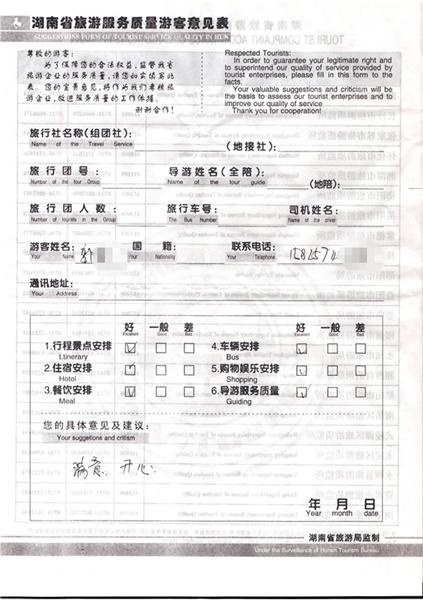 湖南省旅游服务质量游客意见表
SUGGESTIONS FORM OF TOURIST SERVICE QUALITY IN HUN
尊敬的游客:
为了保障您的合法权益,监督我省
旅游企业的服务质量,请您如实填写此
表。您的宝贵意见,将作为我们考核旅
游企业、改进服务质量的工作依据。
谢谢合作!
Respected Tourists:
In order to guarantee your legitimate right and
to superintend our quality of service provided by
tourist enterprises, please fill in this form to the
facts.
Your valuable suggestions and criticism will
be the basis to assess our tourist enterprises and to
improve our quality of service
Thank you for cooperation!
旅行社名称(组团社): (地接社):
Name of the Travel Service
旅行团号: 导游姓名(全陪): (地陪):
Number of the tour Group Name of the tour guide
旅行团人数: 旅行车号: 司机姓名:
Number of tourists in the Group The Bus Number Name of the driver
游客姓名: 国籍: 联系电话:
Your Name Your Nationality Your Telephone
通讯地址:
Your Address
好 一般 差 好 一般 差
Excellent Good Bad Excellent Good Bad
1.行程景点安排 4.车辆安排
Ltinerary Bus
2.住宿安排 5.购物娱乐安排
Hotel Shopping
3.餐饮安排 6.导游服务质量
Meal Guiding
您的具体意见及建议:
Your suggetions and critism
满意、开心
年 月 日
Year month date
湖南省旅游局监制
Under the Surveillance of Hunan Tourism Bureau